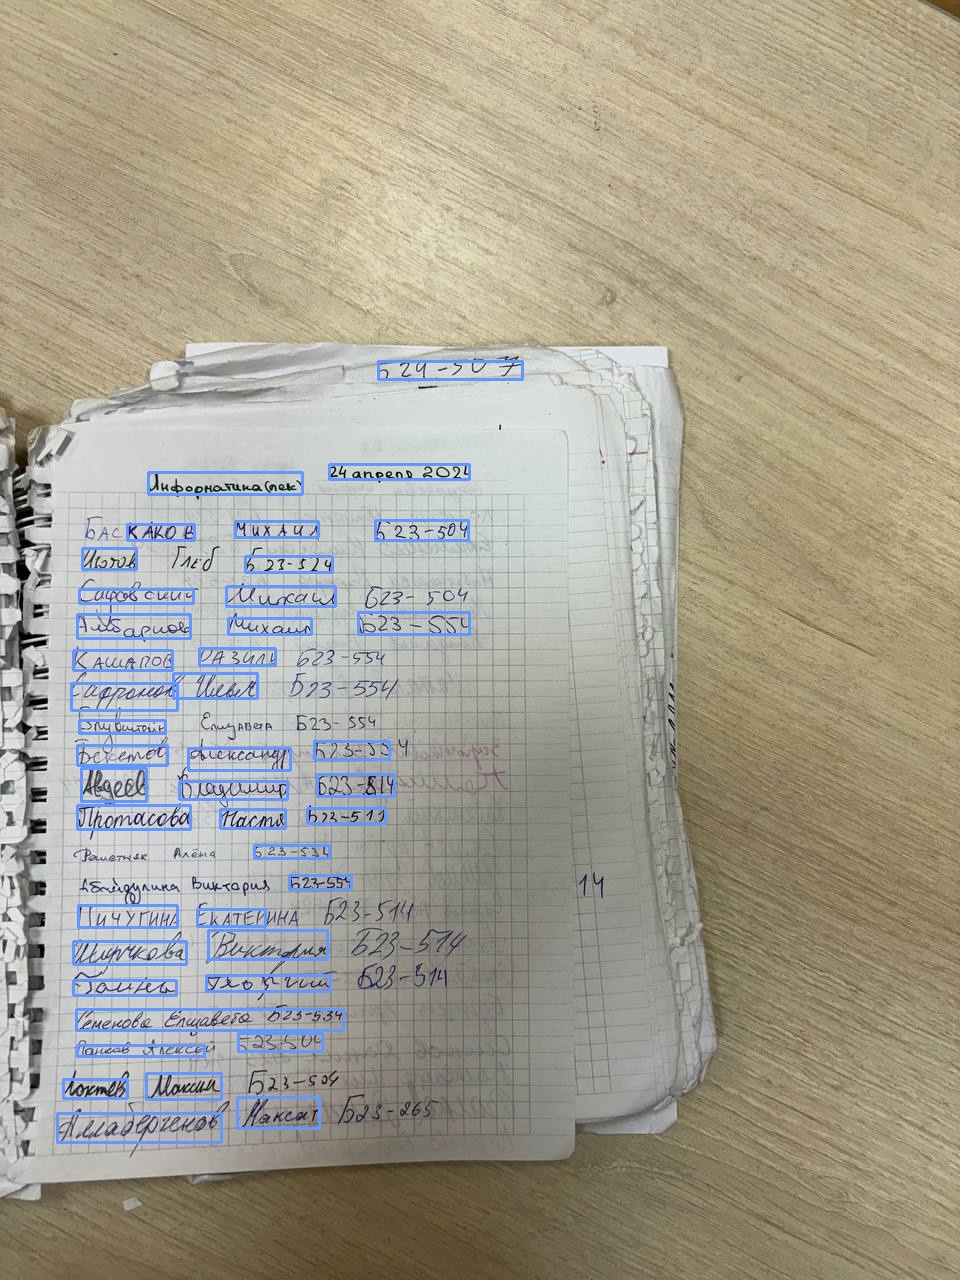 Б24-507
24 апреля 2024
Информатика (лек)
БАСКАКОВ МИХАИЛ Б23-504
Изотов Глеб Б23-524
Садовский Михаил Б23-504
Амбариов Михаил Б23-554
КАШАПОВ РАЗИЛЬ Б23-554
Сафронов Илья Б23-554
Елизавета Б23-554
Бекетов Александр Б23-534
Авдеев Владимир Б23-514
Протасова Настя Б23-511
Решетняк Алёна Б23-534
Абайдулина Виктория Б23-554
ПИЧУГИНА ЕКАТЕРИНА Б23-514
Ширчкова Виктория Б23-514
14
Б23-514
Семенова Елизавета Б23-534
Панков Алексей Б23-504
Локтев Максим Б23-504
Аллабергенов Максат Б23-265